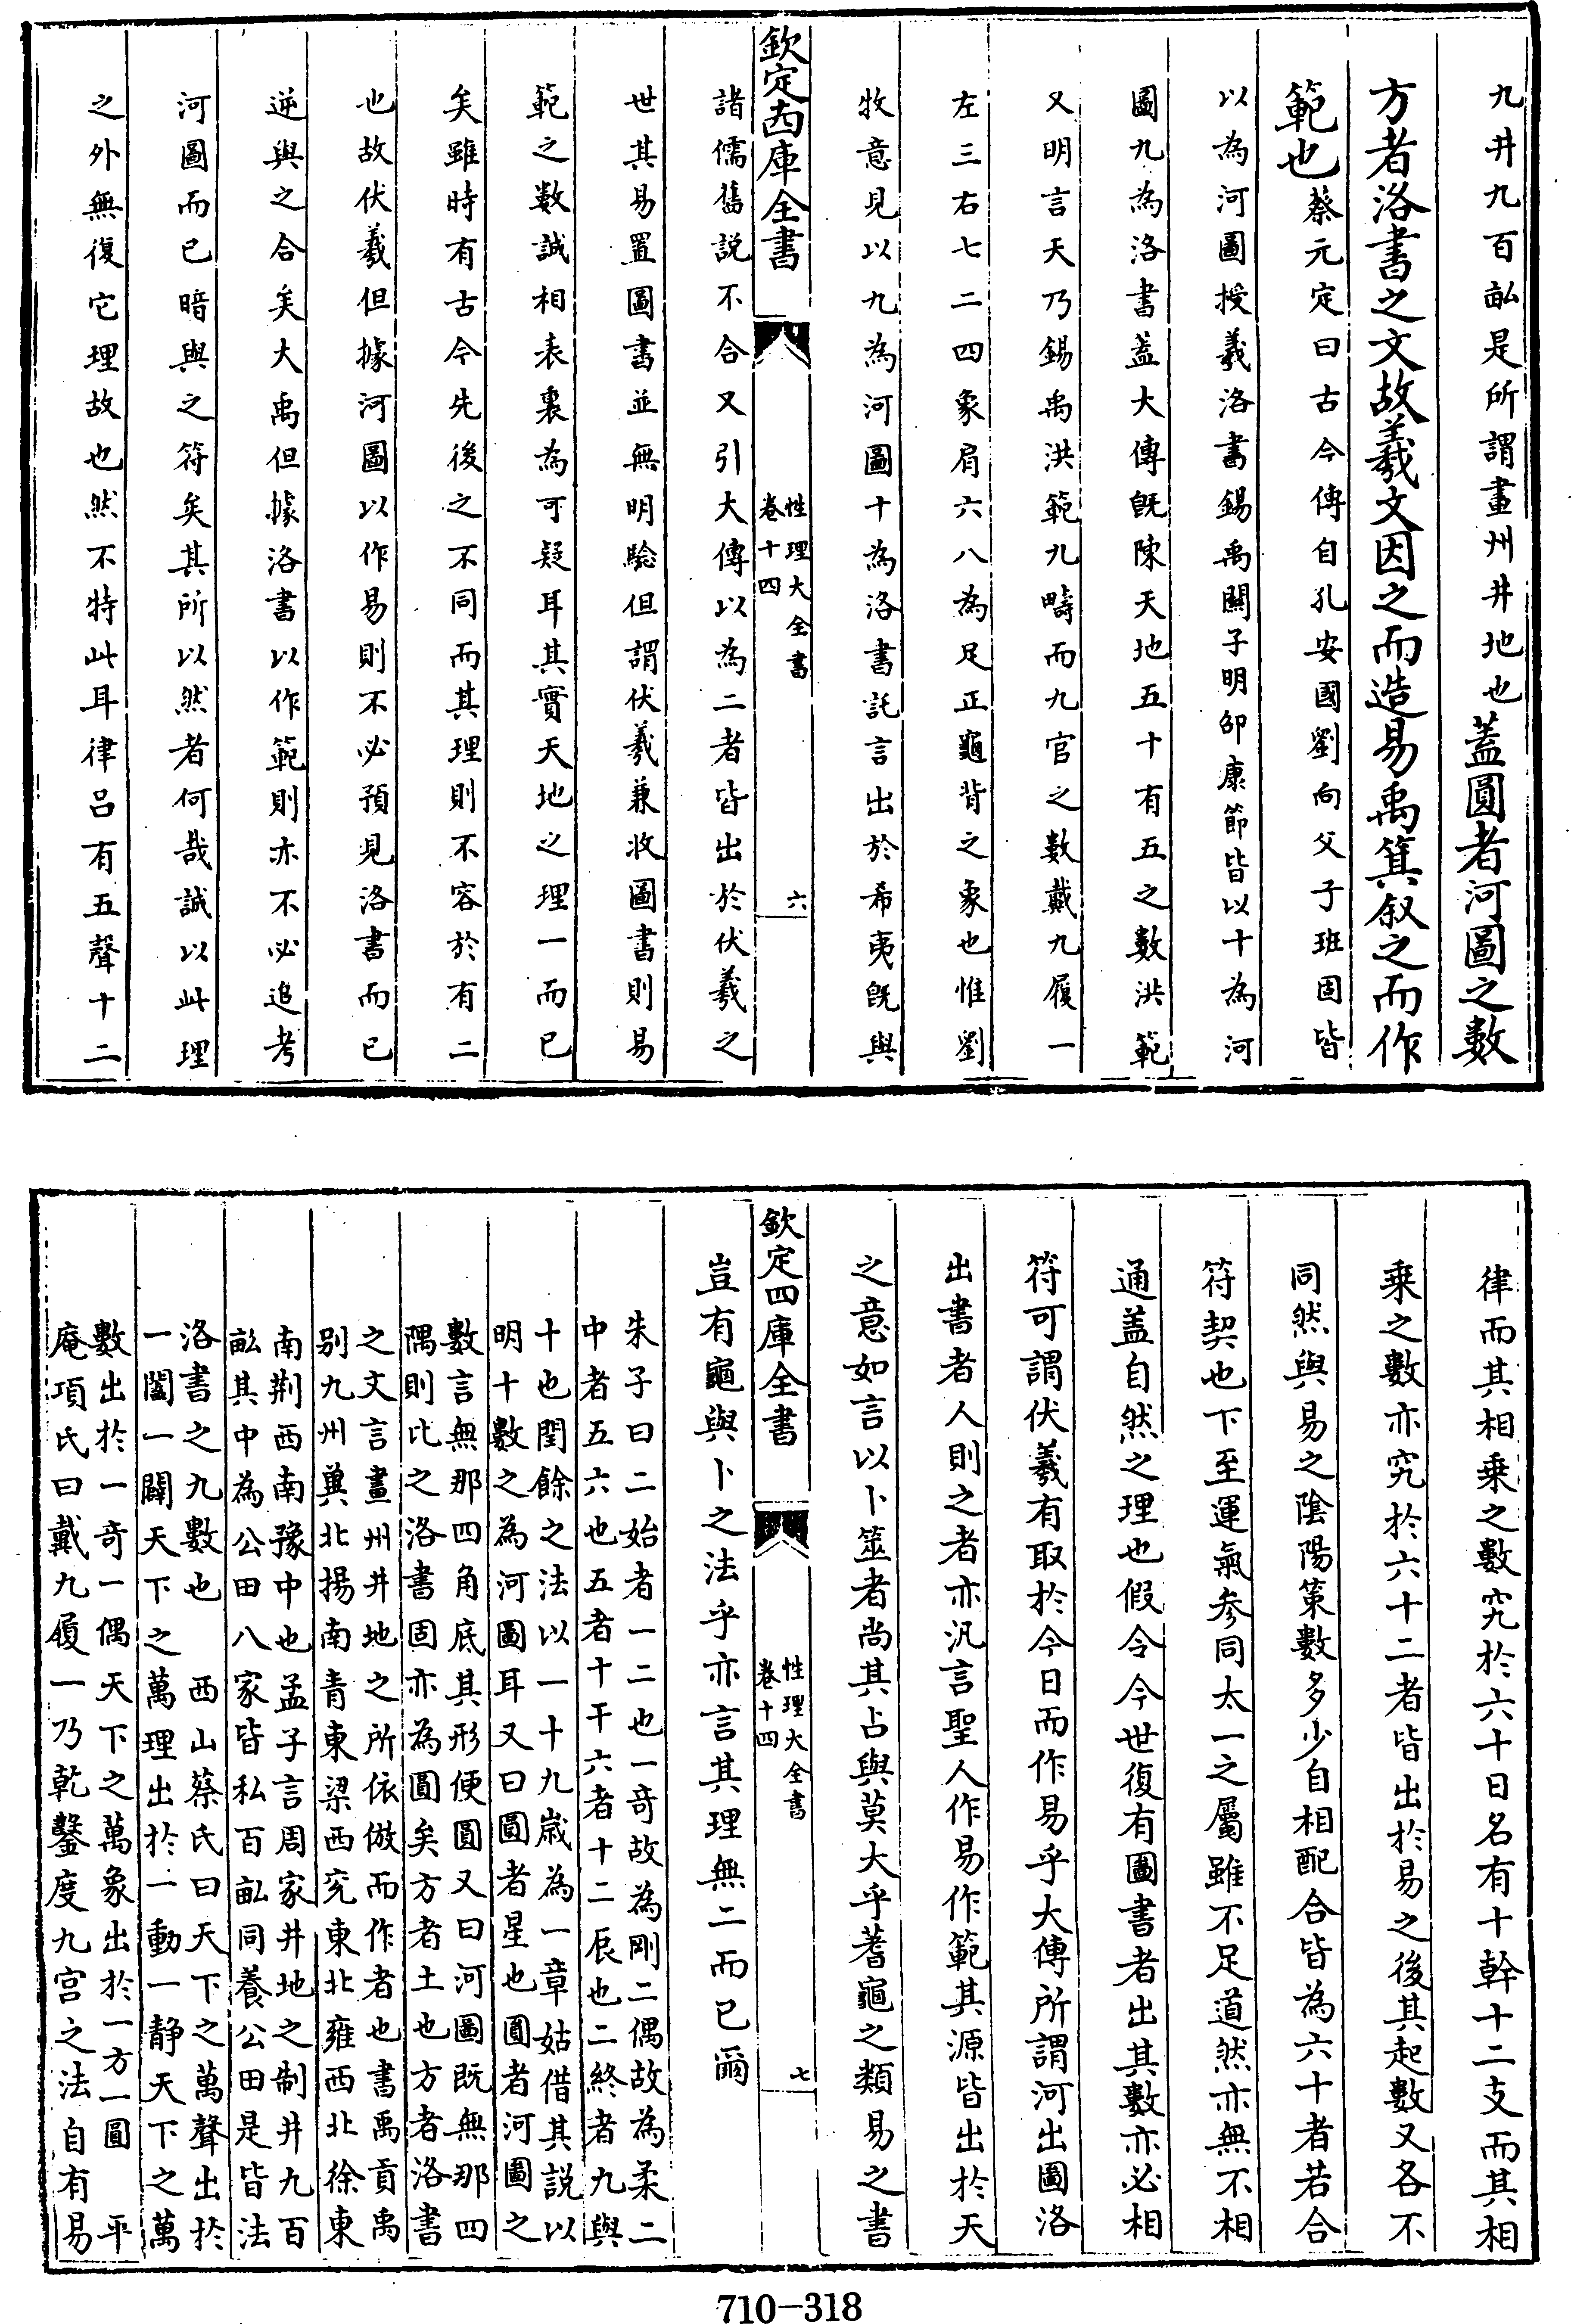 九井九百畝是所謂畫州井地也蓋圓者河圖之數
方者洛書之文故羲文因之而造易禹箕叙之而作
範也蔡元定曰古今傳自孔安國劉向父子班固皆
以為河圖授羲洛書錫禹關子明卲康節皆以十為河
圖九為洛書蓋大傳旣陳天地五十有五之數洪範
又明言天乃錫禹洪範九疇而九宫之數戴九履一
左三右七二四象肩六八為足正龜背之象也惟劉
牧意見以九為河圖十為洛書託言出於希夷旣與
欽定四庫全書
性理大全書
卷十四
六
諸儒舊説不合又引大傳以為二者皆出於伏羲之
世其易置圖書並無明驗但謂伏羲兼收圖書則易
範之數誠相表裏為可疑耳其實天地之理一而已
矣雖時有古今先後之不同而其理則不容於有二
也故伏羲但據河圖以作易則不必預見洛書而已
逆與之合矣大禹但據洛書以作範則亦不必追考
河圖而已暗與之符矣其所以然者何哉誠以此理
之外無復它理故也然不特此耳律呂有五聲十二
律而其相乘之數究於六十日名有十幹十二支而其相
乘之數亦究於六十二者皆出於易之後其起數又各不
同然與易之陰陽策數多少自相配合皆為六十者若合
符契也下至運氣參同太一之屬雖不足道然亦無不相
通蓋自然之理也假令今世復有圖書者出其數亦必相
符可謂伏羲有取於今日而作易乎大傳所謂河出圖洛
出書者人則之者亦汎言聖人作易作範其源皆出於天
之意如言以卜筮者尚其占與莫大乎蓍龜之類易之書
欽定四庫全書
性理大全書
卷十四
七
豈有龜與卜之法乎亦言其理無二而已爾
朱子曰二始者一二也一奇故為剛二偶故為柔二
中者五六也五者十干六者十二辰也二終者九與
十也閏餘之法以一十九歲為一章姑借其説以
明十數之為河圖耳又曰圓者星也圓者河圖之
數言無那四角底其形便圓又曰河圖既無那四
隅則比之洛書固亦為圓矣方者土也方者洛書
之文言畫州井地之所依倣而作者也書禹貢禹
别九州冀北揚南青東梁西兖東北雍西北徐東
南荆西南豫中也孟子言周家井地之制井九百
畝其中為公田八家皆私百畝同養公田是皆法
洛書之九數也　西山蔡氏曰天下之萬聲出於
一闔一闢天下之萬理出於一動一静天下之萬
數出於一奇一偶天下之萬象出於一方一圓　平
庵項氏曰戴九履一乃乾鑿度九宫之法自有易
710-318